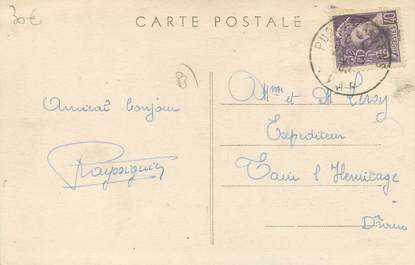 30€
CARTE POSTALE
Amical bonjour
Mme et M Leroy
Expediteur
Tain l'Hermitage
Drôme